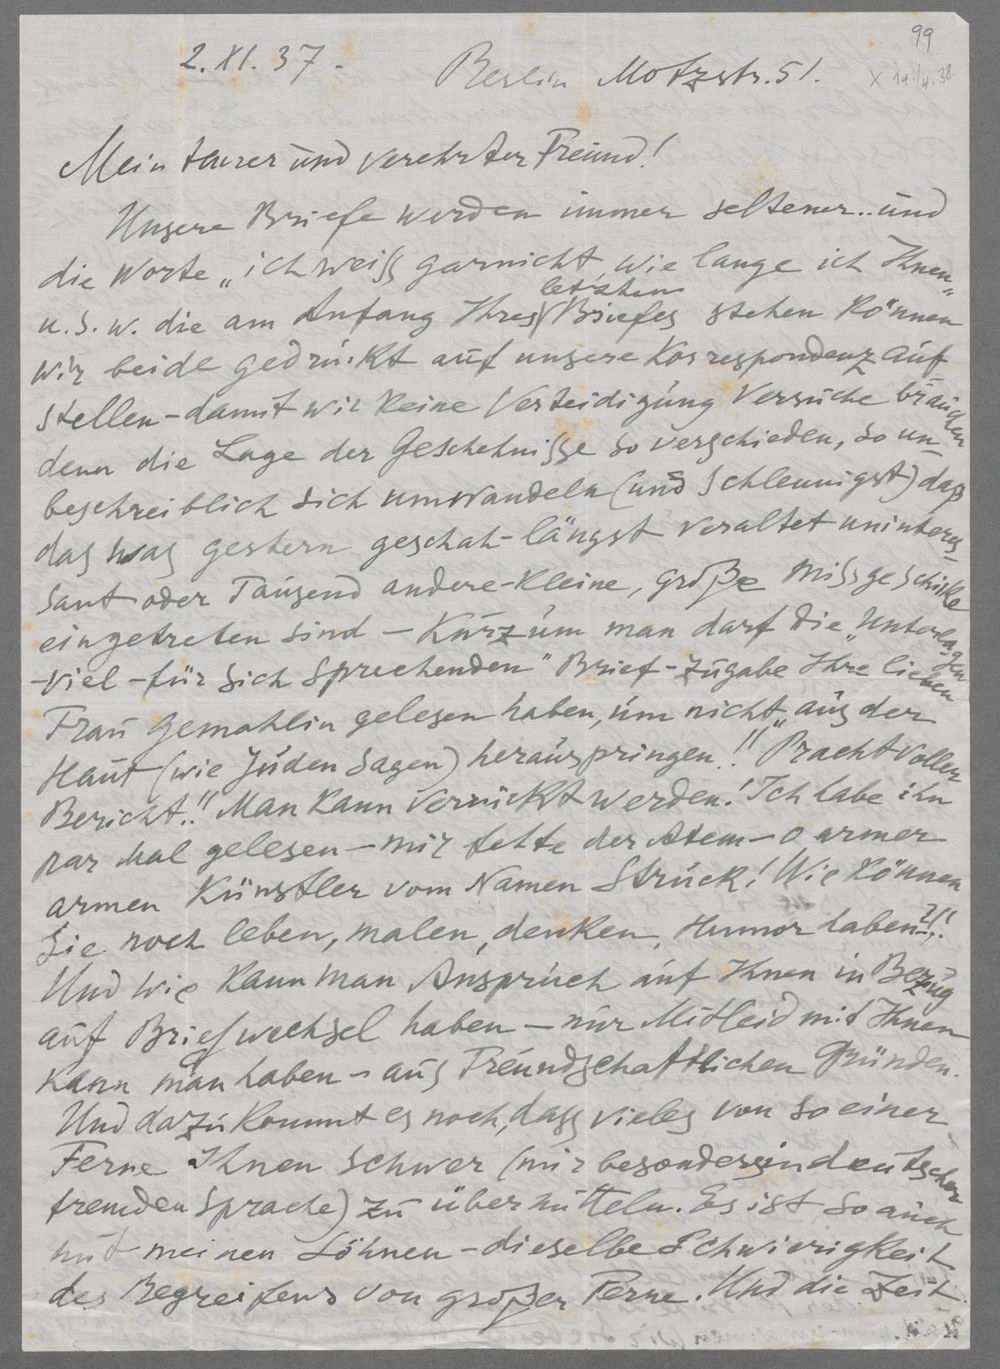 99
2. XI. 37. Berlin Motzstr. 51.
x 14./4. 38.
Mein teurer und verehrter Freund!
Unsere Briefe werden immer seltener.. und
die Worte „ich weiss garnicht, wie lange ich Ihnen"
letzten
u.s.w. die am Anfang Ihres Briefes stehen können
wir beide gedrückt auf unsere Korrespondenz auf
stellen - damit wir keine Verteidigung Versuche brauchen
denn die Lage der Geschehnisse so verschieden, so un-
beschreiblich sich umwandeln (und schleunigst) daß
das was gestern geschah - längst veraltet uninteres-
sant oder Tausend andere - kleine, große Missgeschicke
eingetreten sind - Kurzum man darf die „Unterlagen
-viel - für sich sprechenden" Brief-Zugabe Ihre lieben
Frau Gemahlin gelesen haben, um nicht „aus der
Haut (wie Juden sagen) herauspringen!! "Prachtvoller
Bericht!! Man kann verrückt werden! Ich habe ihn
par Mal gelesen - mir fehlte der Atem - o armer
armen Künstler vom Namen Struck! Wie können
Sie noch leben, malen, denken, Humor haben?!!
Und wie kann man Anspruch auf Ihnen in Bezug
auf Briefwechsel haben - nur Mitleid mit Ihnen
kann man haben - aus Freundschaftlichen Gründen.
Und dazu kommt es noch, dass vieles von so einer
Ferne Ihnen schwer (mir besonders in deutscher
fremden Sprache) zu übermitteln. Es ist so auch
mit meinen Söhnen - dieselbe Schwierigkeit
des Begreifens von großer Ferne. Und die Zeit